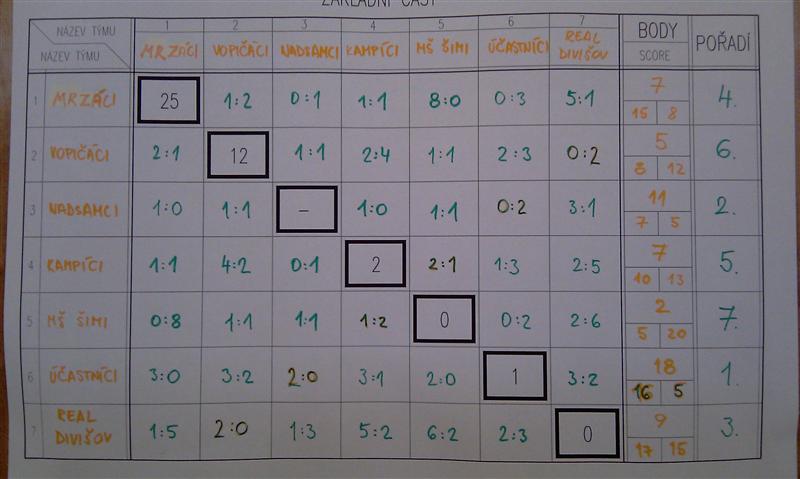 ZÁKLADNÍ ČÁST
NÁZEV TÝMU 1 2 3 4 5 6 7 BODY POŘADÍ
NÁZEV TÝMU MRZÁCI VOPIČÁCI NADSAMCI KAMPÍCI MŠ ŠIMI ÚČASTNÍCI REAL DIVIŠOV SCORE
1 MRZÁCI 25 1:2 0:1 1:1 8:0 0:3 5:1 7 4.
15 8
2 VOPIČÁCI 2:1 12 1:1 2:4 1:1 2:3 0:2 5 6.
8 12
3 NADSAMCI 1:0 1:1 – 1:0 1:1 0:2 3:1 11 2.
7 5
4 KAMPÍCI 1:1 4:2 0:1 2 2:1 1:3 2:5 7 5.
10 13
5 MŠ ŠIMI 0:8 1:1 1:1 1:2 0 0:2 2:6 2 7.
5 20
6 ÚČASTNÍCI 3:0 3:2 2:0 3:1 2:0 1 3:2 18 1.
16 5
7 REAL DIVIŠOV 1:5 2:0 1:3 5:2 6:2 2:3 0 9 3.
17 15